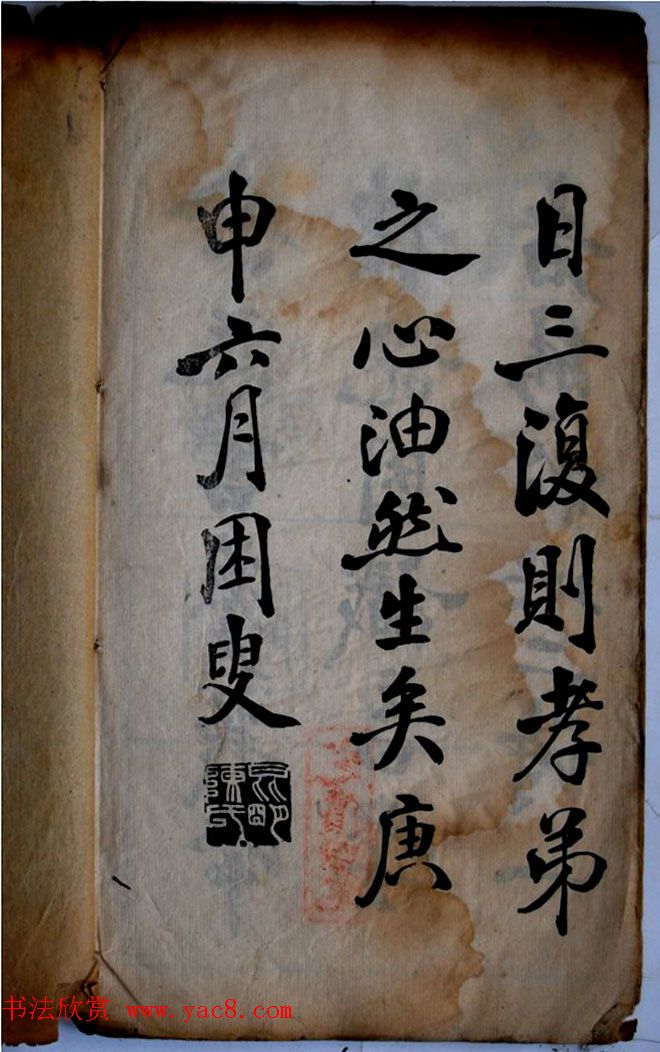 日三復則孝弟
之心油然生矣庚
申六月困叟
书法欣赏 www.yac8.com